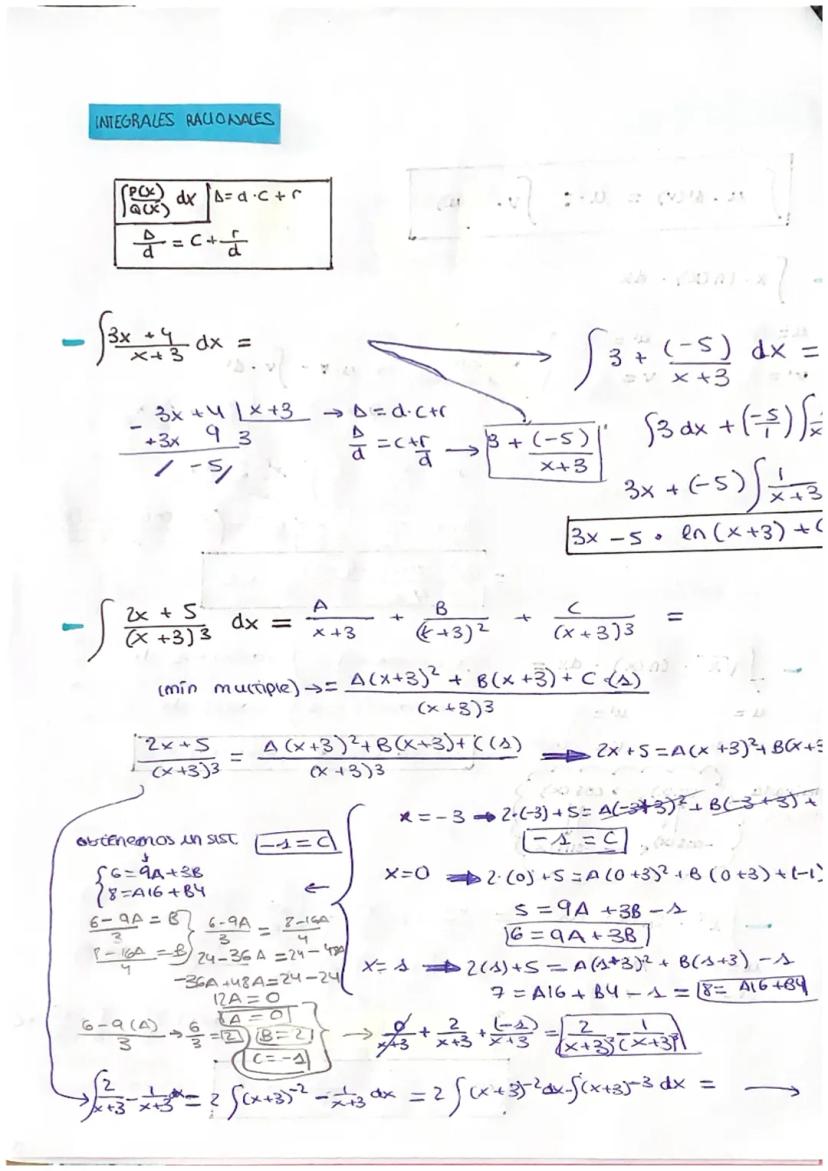 INTEGRALES RACIONALES
∫ P(x)/Q(x) dx | D = d · C + r
D/d = C + r/d
- ∫ (3x + 4)/(x + 3) dx =
∫ 3 + (-5)/(x+3) dx =
- 3x + 4 | x + 3 → D = d·C+r
+3x 9 3
/ -5/
D/d = C + r/d → 3 + (-5)/(x+3)
∫3 dx + (-5/1) ∫
3x + (-5) ∫ 1/(x+3)
3x - 5 · ln(x+3) + C
- ∫ (2x + 5)/(x+3)³ dx = A/(x+3) + B/(x+3)² + C/(x+3)³ =
(mín multiple) → = (A(x+3)² + B(x+3) + C·(1))/(x+3)³
(2x+5)/(x+3)³ = (A(x+3)²+B(x+3)+C(1))/(x+3)³ ⇒ 2x+5 = A(x+3)²+B(x+3
x = -3 → 2·(-3)+5 = A(-3+3)² + B(-3+3) +
-1 = C
obtenemos un sist. -1 = C
{ 6 = 9A+3B
{ 8 = A16 + B4 ←
x=0 ⇒ 2·(0)+5 = A(0+3)² + B(0+3)+(-1)
5 = 9A + 3B - 1
6 = 9A + 3B
(6-9A)/3 = B
(8-16A)/4 = B
(6-9A)/3 = (8-16A)/4
24-36A = 24-48A
-36A+48A = 24-24
12A = 0
A = 0
x = 1 ⇒ 2(1)+5 = A(1+3)² + B(1+3) - 1
7 = A16 + B4 - 1 = 8 = A16+B4
(6-9(A))/3 → 6/3 = 2 B = 2
C = -1
→ 0/(x+3) + 2/(x+3) + (-1)/(x+3) = 2/(x+3)² - 1/(x+3)³
∫ 2/(x+3) - 1/(x+3) dx = 2 ∫(x+3)⁻² - 1/(x+3) dx = 2 ∫ (x+3)⁻² dx - ∫(x+3)⁻³ dx = →